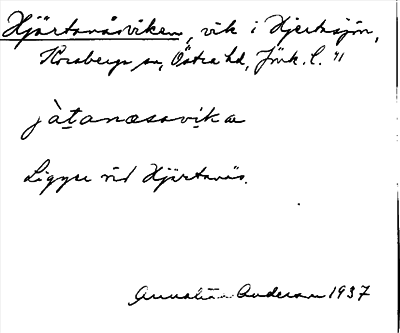 Hjärtanäsviken, vik i Hjertasjön,
Korsberga sn, Östra hd, Jönk. l. "
jàtanæssvika
Ligger vid Hjärtanäs.
Anderson 1937